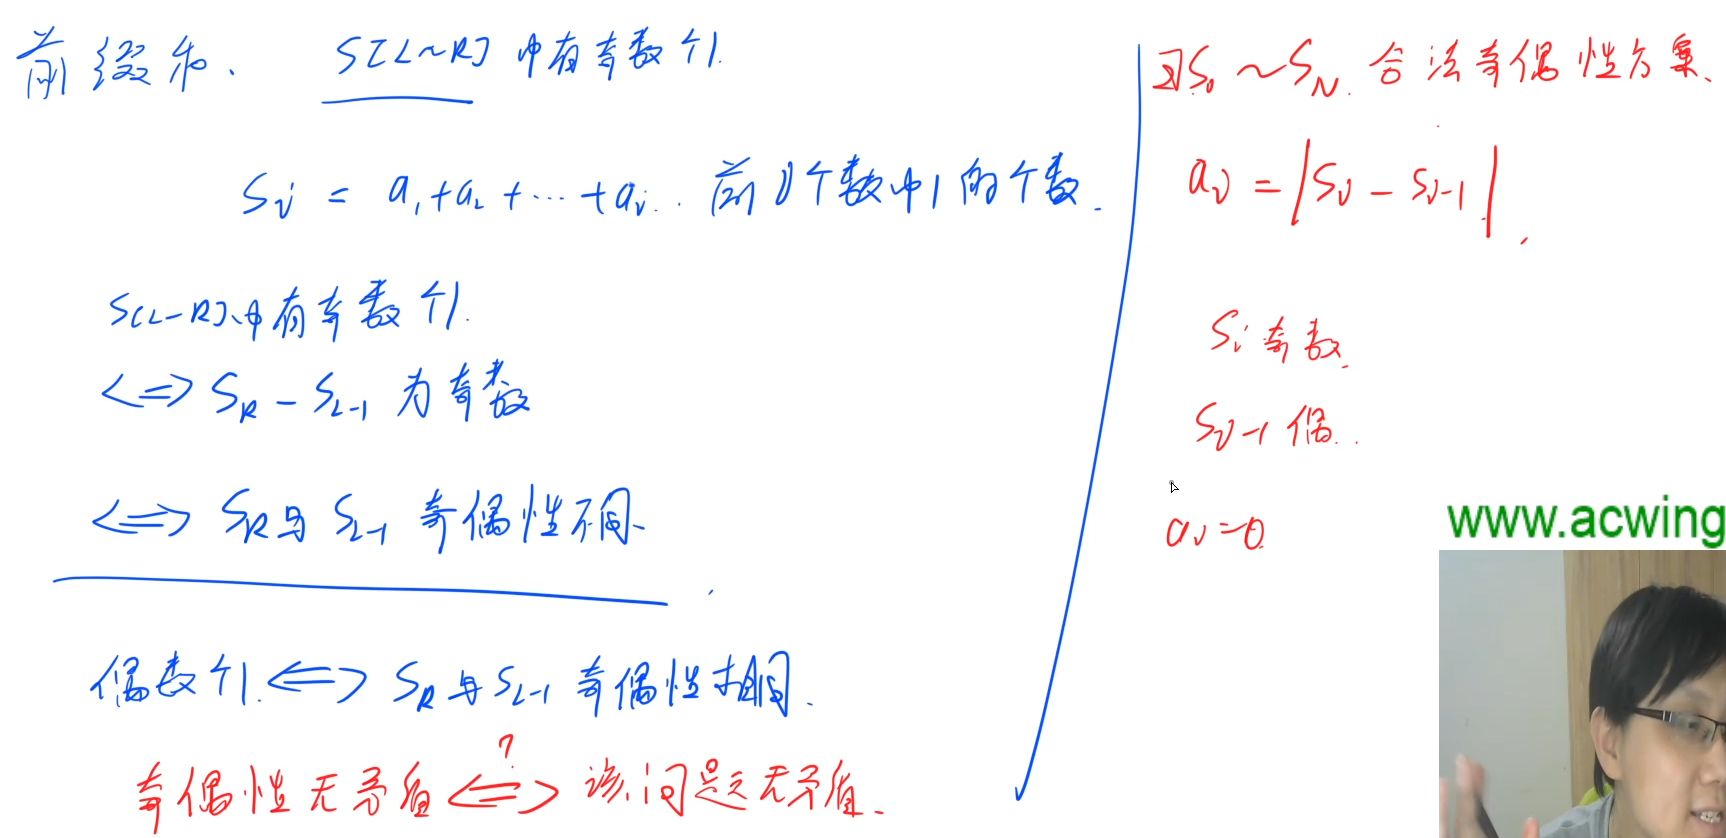 前缀和、 S[L~R]中有奇数个1.
Si = a1+a2+…+ai.. 前i个数中1的个数.
S[L-R]中有奇数个1.
<=> SR - SL-1 为奇数
<=> SR与SL-1 奇偶性不同、
偶数个1. <=> SR与SL-1 奇偶性相同.
奇偶性无矛盾 <=>? 该问题无矛盾.
∃S0 ~ SN. 合法奇偶性方案、
ai = |Si - Si-1|.
Si 奇数.
Si-1 偶..
ai=0.
www.acwing